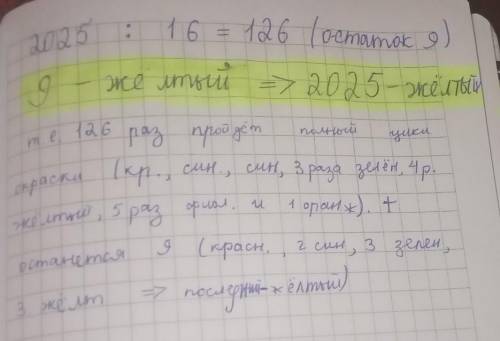 2025 : 16 = 126 (остаток 9)
9 - жёлтый => 2025 - жёлтый
т е, 126 раз пройдёт полный цикл
окраски (кр., син., син, 3 раза зелён, 4 р.
жёлтый, 5 раз фиол. и 1 оранж). +
останется 9 (красн., 2 син, 3 зелен,
3 жёлт => последний-жёлтый)